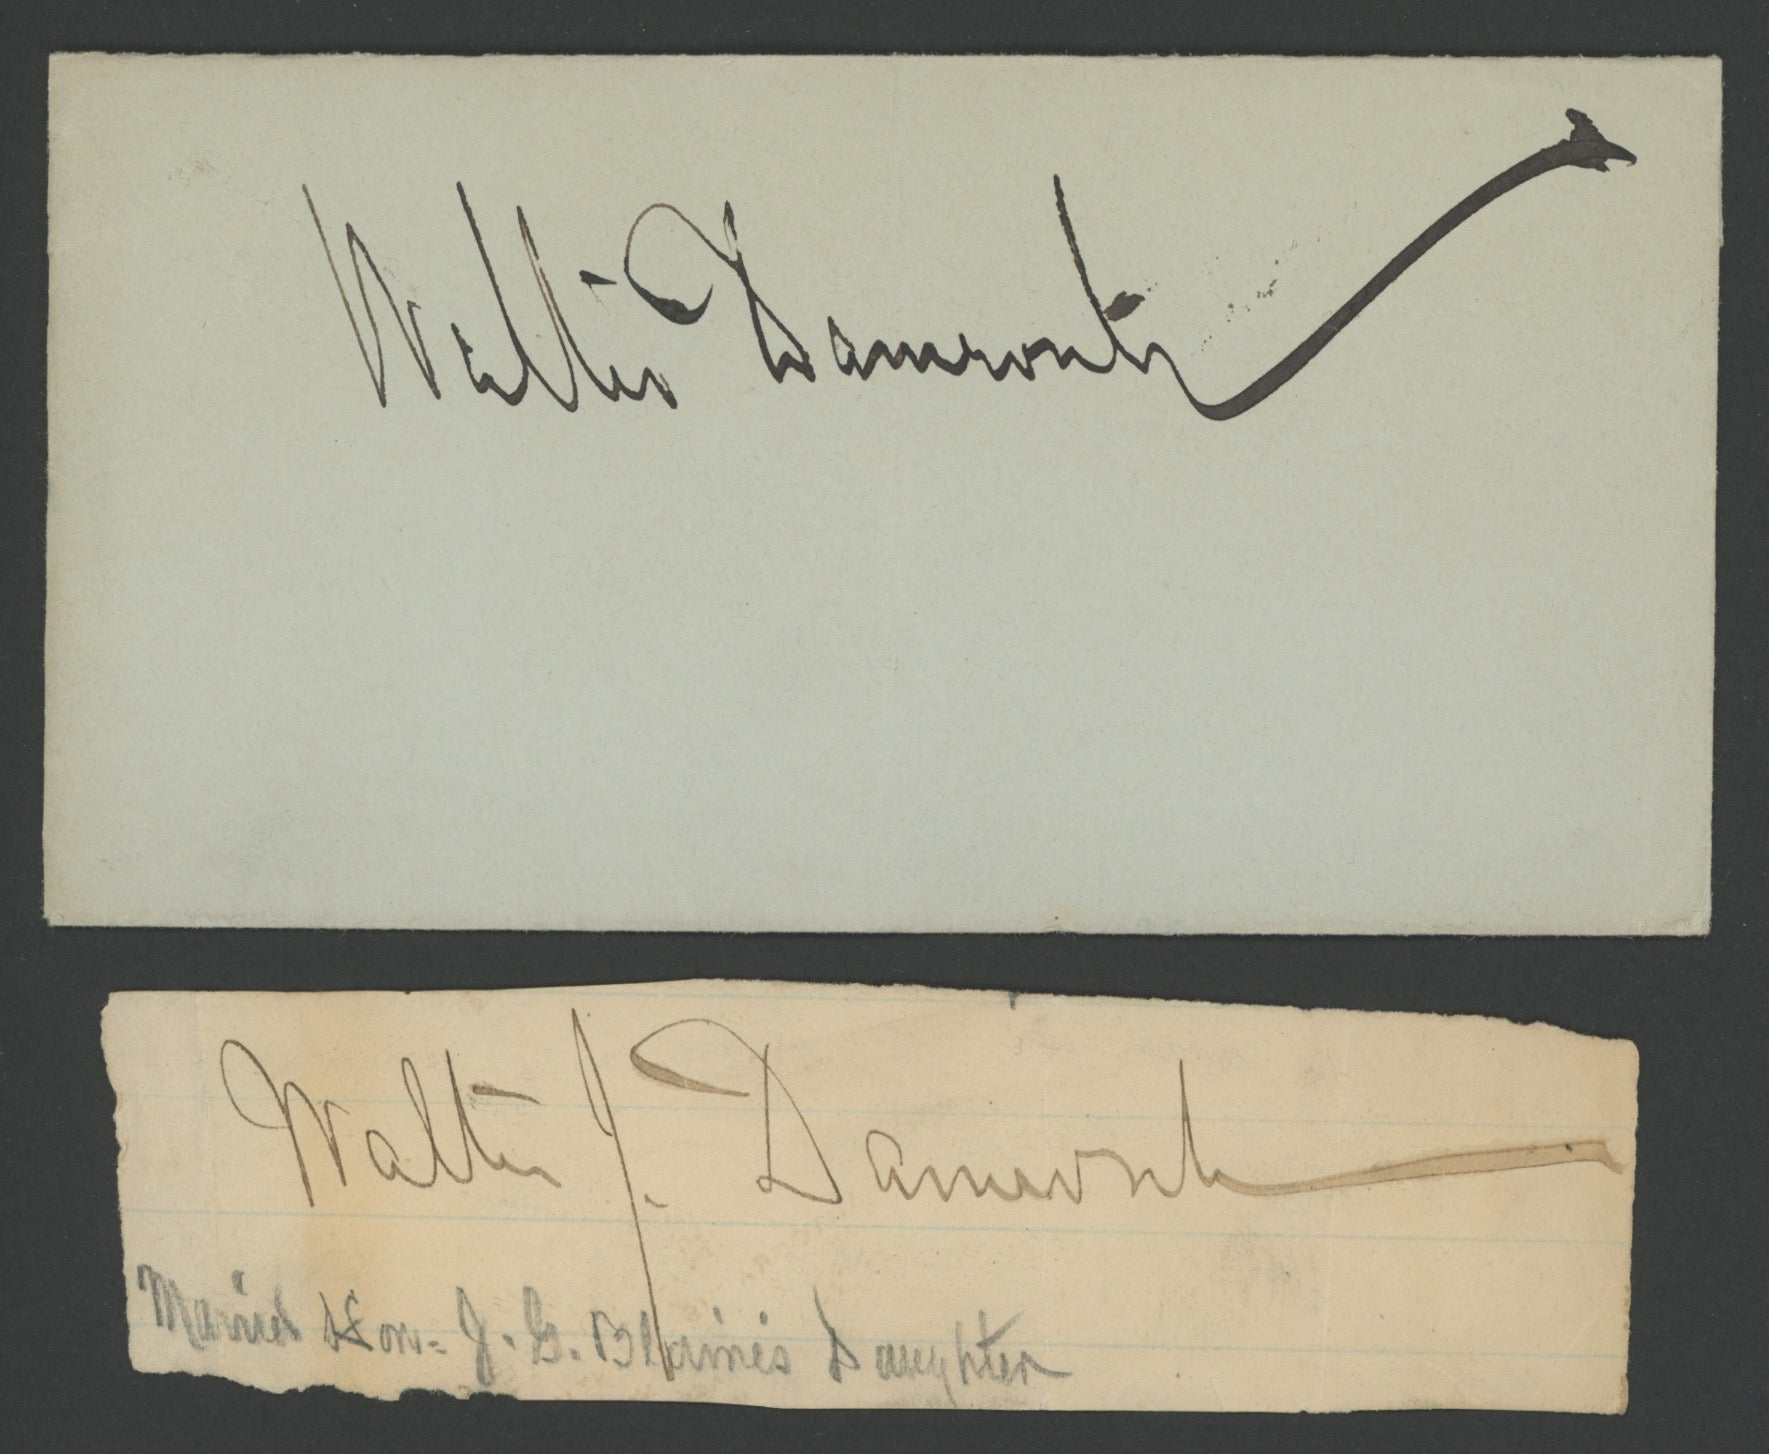 Walter Damrosch
Walter J. Damrosch
Married Hon. J. G. Blaine's Daughter